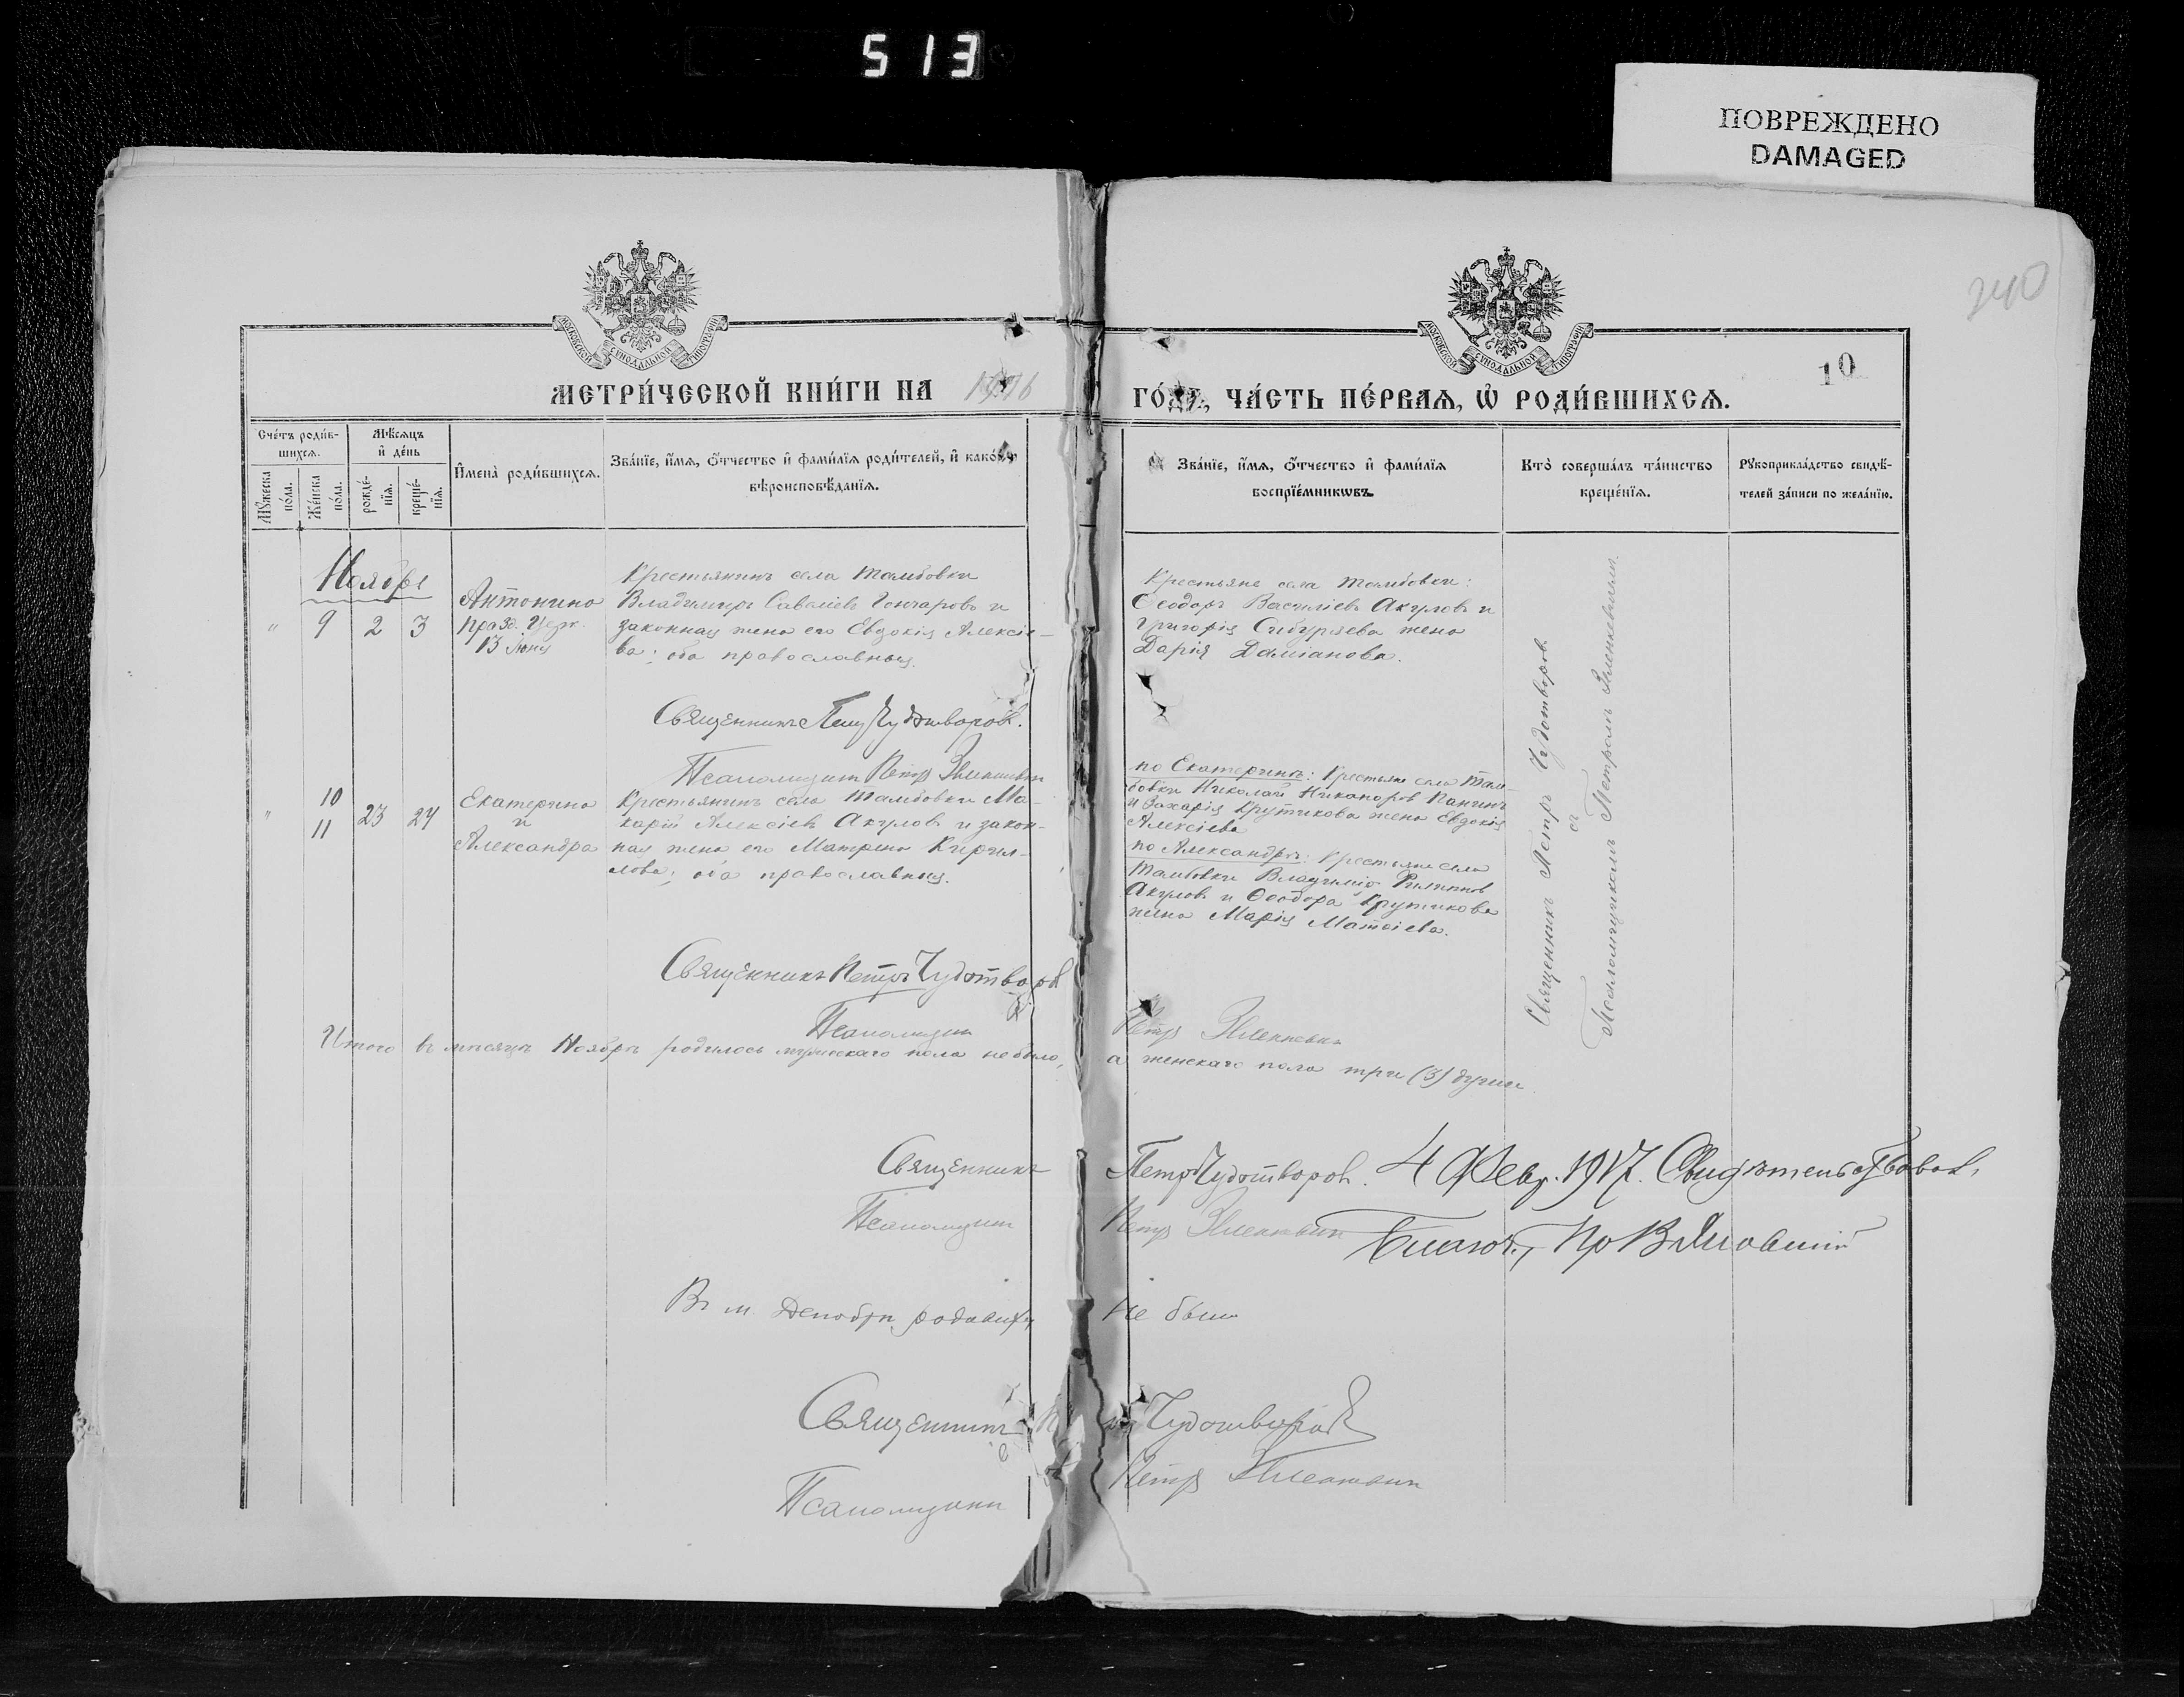 513
ПОВРЕЖДЕНО
DAMAGED
240
МОСКОВСКОЙ СѴНОДАЛЬНОЙ ТИПОГРАФІИ
МОСКОВСКОЙ СѴНОДАЛЬНОЙ ТИПОГРАФІИ
10
МЕТРИ́ЧЕСКОЙ КНИ́ГИ НА 1916
ГО́ДЪ, ЧА́СТЬ ПЕ́РВАѦ, Ѡ҆ РОДИ́ВШИХСѦ.
Сче́тъ роди́в-
шихсѧ.
Мꙋ́жеска по́ла.
Же́нска по́ла.
Мѣ́сѧцъ
и҆ де́нь
рожде́-
нїѧ.
креще́-
нїѧ.
И҆мена̀ роди́вшихсѧ.
Зва́нїе, и҆́мѧ, ѻ҆́тчество и҆ фами́лїѧ роди́телей, и҆ како́гѡ
вѣроисповѣ́данїѧ.
Зва́нїе, и҆́мѧ, ѻ҆́тчество и҆ фами́лїѧ
воспрїе́мникѡвъ.
Кто̀ соверша́лъ та́инство
креще́нїѧ.
Рꙋкоприкла́дство свидѣ́-
телей за́писи по жела́нїю.
Ноябрь
" 9 2 3
Антонина
празд. церк.
13 Июня
Крестьянинъ села Тамбовки
Владимиръ Савеліевъ Гончаровъ и
законная жена его Евдокія Алексіе-
ва; оба православные.
Крестьяне села Тамбовки:
Ѳеодоръ Василіевъ Акуловъ и
Григорія Сибуряева жена
Дарія Даміанова.
Священникъ Петръ Чудотворовъ.
Псаломщикъ Петръ
" 10 11 23 24
Екатерина
и
Александра
Крестьянинъ села Тамбовки Ма-
карій Алексіевъ Акуловъ и закон-
ная жена его Матрона Кирил-
лова; оба православные.
по Екатеринѣ: Крестьяне села Там-
бовки Николай Никаноровъ Панинъ
и Захарія Крутикова жена Евдокія
Алексіева
по Александрѣ: Крестьяне села
Тамбовки Владиміръ Филипповъ
Акуловъ и Ѳеодора Крутикова
жена Марія Матѳіева.
Священникъ Петръ Чудотворовъ
съ
Псаломщикомъ Петромъ
Священникъ Петръ Чудотворовъ
Псаломщикъ Петръ
Итого въ мѣсяцѣ Ноябрѣ родилось мужескаго пола не было, а женскаго пола три (3) души
Священникъ Петръ Чудотворовъ. 4 Февр. 1917. Свидѣтельствовалъ,
Псаломщикъ Петръ
Благоч.,
Въ м. Декабрѣ родившихся не было
Священникъ Петръ Чудотворовъ
Псаломщикъ Петръ